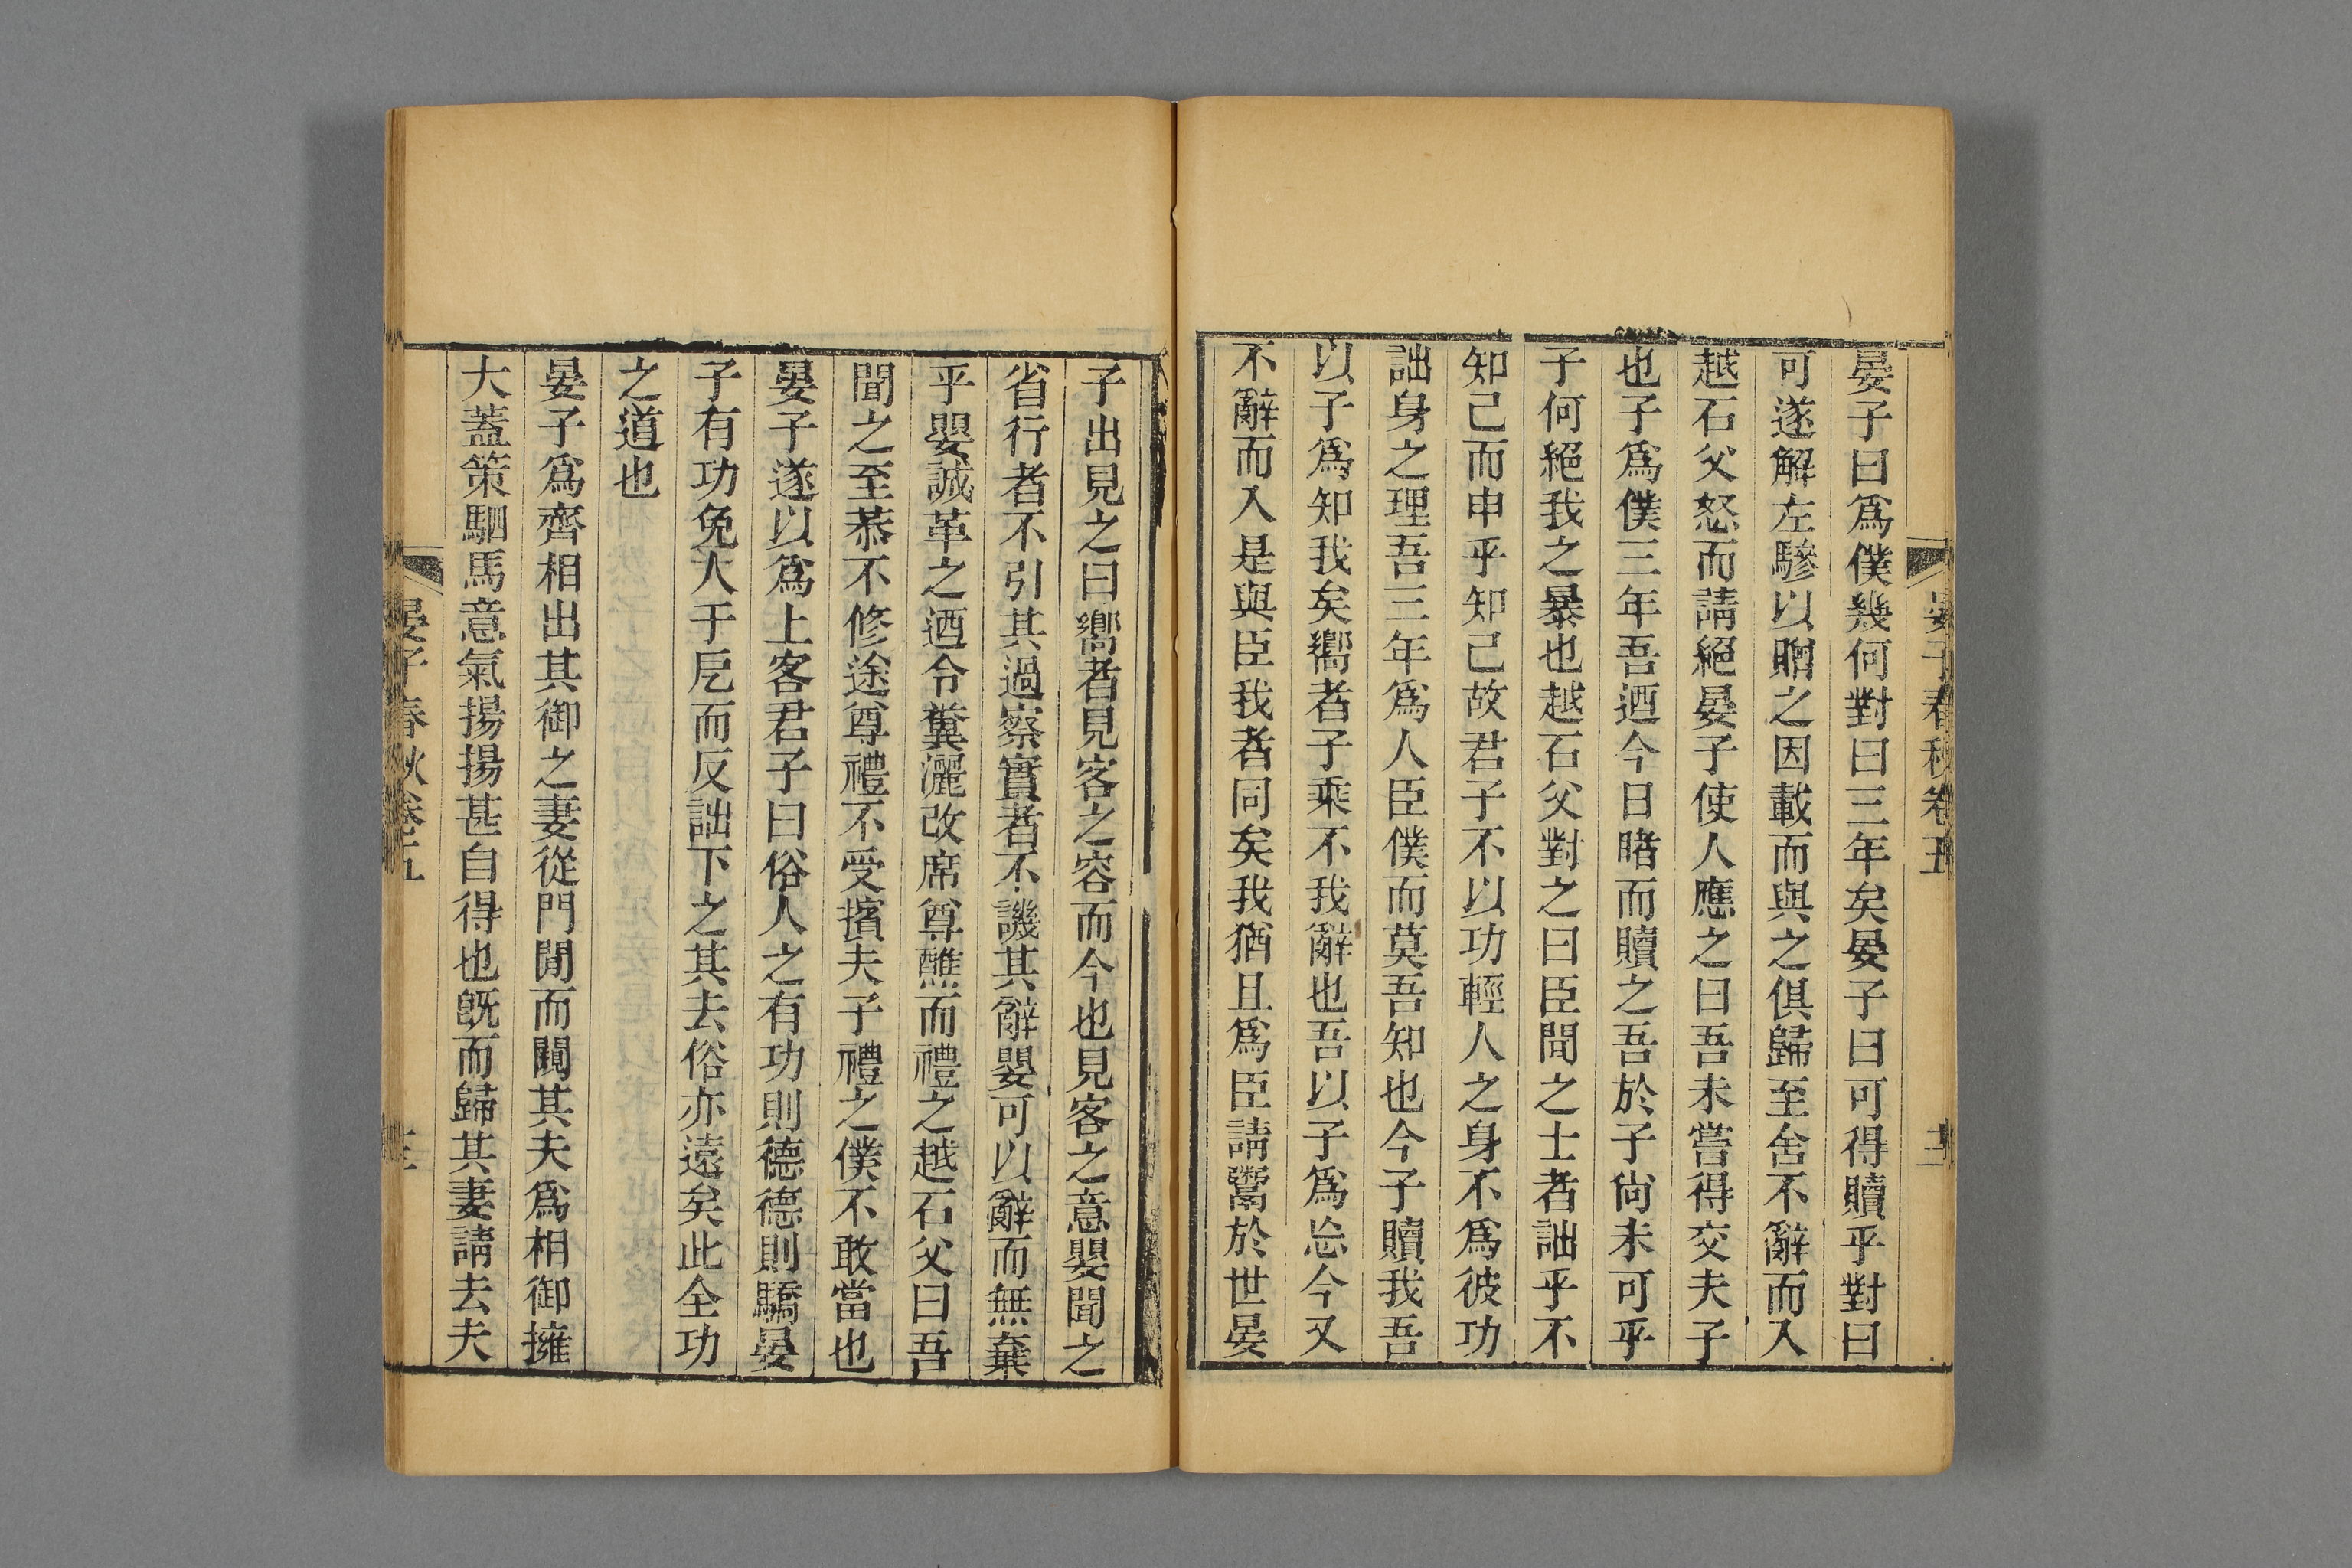 晏子春秋卷五
晏子曰爲僕幾何對曰三年矣晏子曰可得贖乎對曰
可遂解左驂以贈之因載而與之俱歸至舍不辭而入
越石父怒而請絕晏子使人應之曰吾未嘗得交夫子
也子爲僕三年吾迺今日睹而贖之吾於子尙未可乎
子何絕我之暴也越石父對之曰臣聞之士者詘乎不
知己而申乎知己故君子不以功輕人之身不爲彼功
詘身之理吾三年爲人臣僕而莫吾知也今子贖我吾
以子爲知我矣嚮者子乘不我辭也吾以子爲忘今又
不辭而入是與臣我者同矣我猶且爲臣請鬻於世晏
子出見之曰嚮者見客之容而今也見客之意嬰聞之
省行者不引其過察實者不譏其辭嬰可以辭而無棄
乎嬰誠革之迺令糞灑改席尊醮而禮之越石父曰吾
聞之至恭不修途尊禮不受擯夫子禮之僕不敢當也
晏子遂以爲上客君子曰俗人之有功則德德則驕晏
子有功免人于戹而反詘下之其去俗亦遠矣此全功
之道也
晏子爲齊相出其御之妻從門閒而闚其夫爲相御擁
大蓋策駟馬意氣揚揚甚自得也旣而歸其妻請去夫
晏子春秋卷五